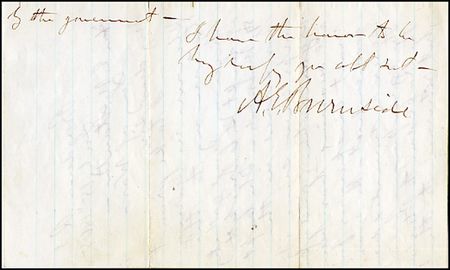 by the government —
I have the honor to be
Very respy your obt svt —
A. E. Burnside